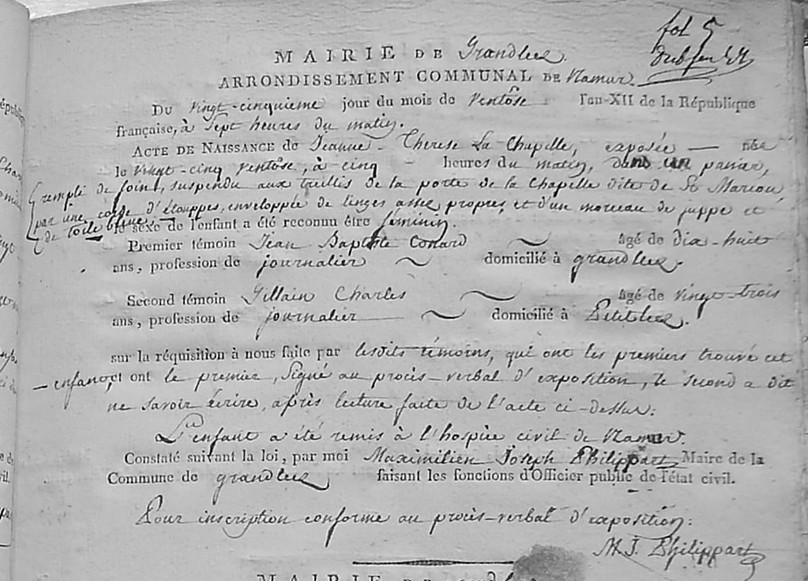 fol 5
MAIRIE DE Grandleez
ARRONDISSEMENT COMMUNAL DE Namur
Du Vingt-cinquieme jour du mois de Ventôse l'an XII de la République
française, à Sept heures du matin.
ACTE DE NAISSANCE de Jeanne - Therese La Chapelle, exposée — née
le Vingt-cinq Ventôse, à cinq - heures du matin, dans un panier,
remplie de foint, suspendu aux treillis de la porte de la Chapelle dite de St Mariou
par une corde d'étouppes, enveloppée de linges assez propres, et d'un morceau de juppe et
de toile bleue.
le sexe de l'enfant a été reconnu être féminin.
Premier témoin Jean Baptiste Conard âgé de dix-huit
ans, profession de journalier domicilié à grandleez.
Second témoin Gillain Charles âgé de vingt trois
ans, profession de journalier domicilié à Petitleez.
sur la réquisition à nous faite par lesdits témoins, qui ont les premiers trouvé cet
— enfant, et ont le premier, Signé au procès-verbal d'exposition, le second a dit
ne savoir écrire, après lecture faite de l'acte ci-dessus.
L'enfant a été remis à l'hospice civil de Namur.
Constaté suivant la loi, par moi Maximilien Joseph Philippart, Maire de la
Commune de grandleez faisant les fonctions d'Officier public de l'état civil.
Pour inscription conforme au procès-verbal d'exposition:
M. J. Philippart
MAIRIE DE grandleez